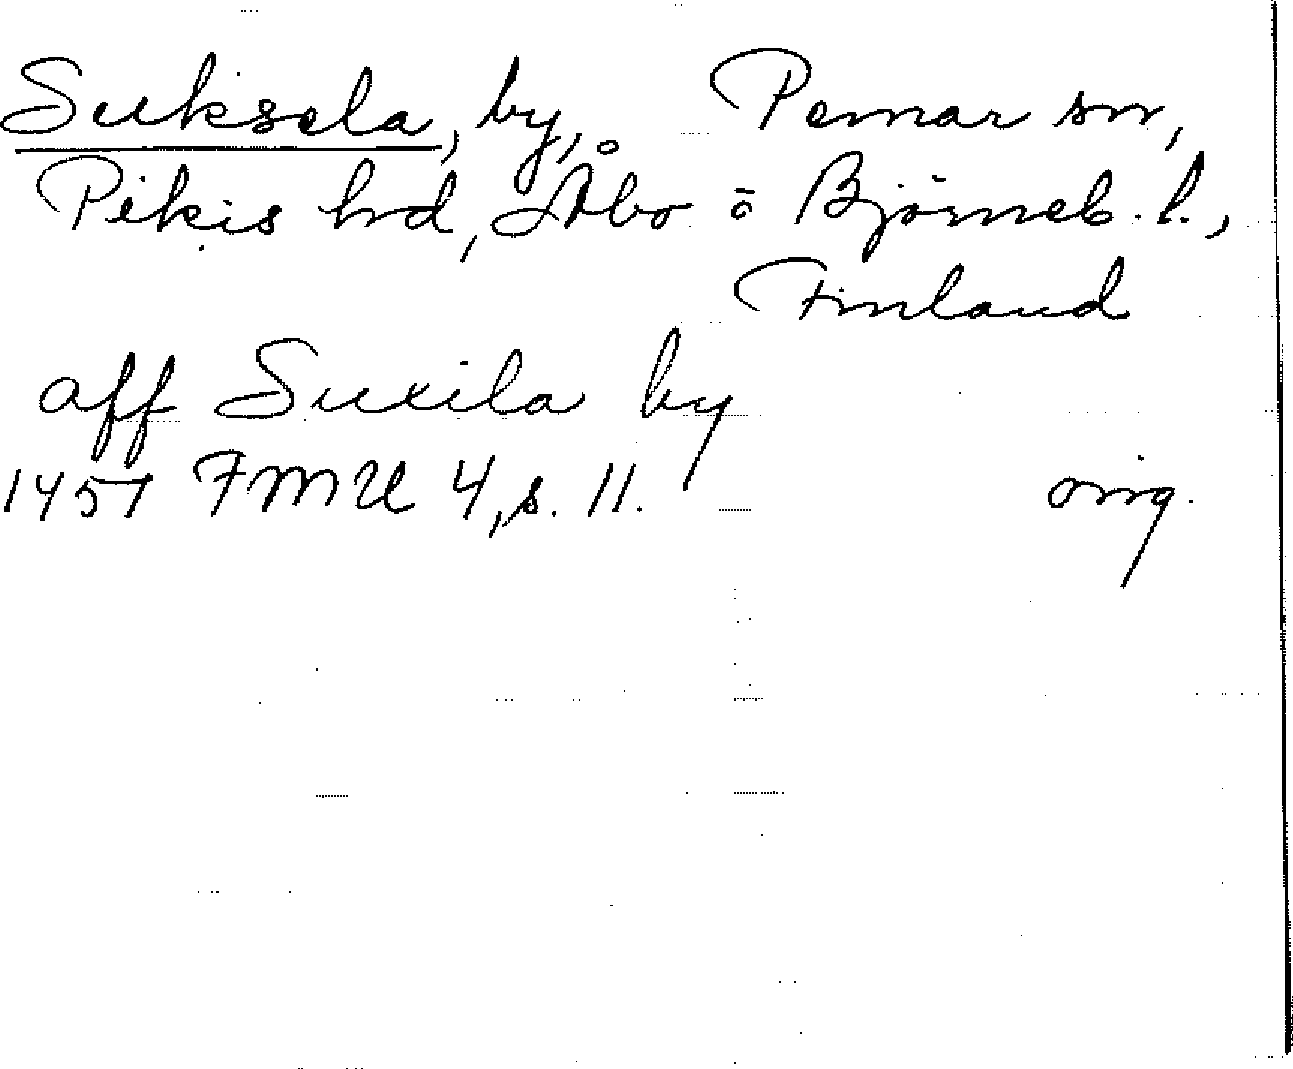 Suksela, by, Pemar sn,
Pikis hrd, Åbo o Björneb. l.,
Finland
aff Suxila by
1457 FMU 4, s. 11. orig.